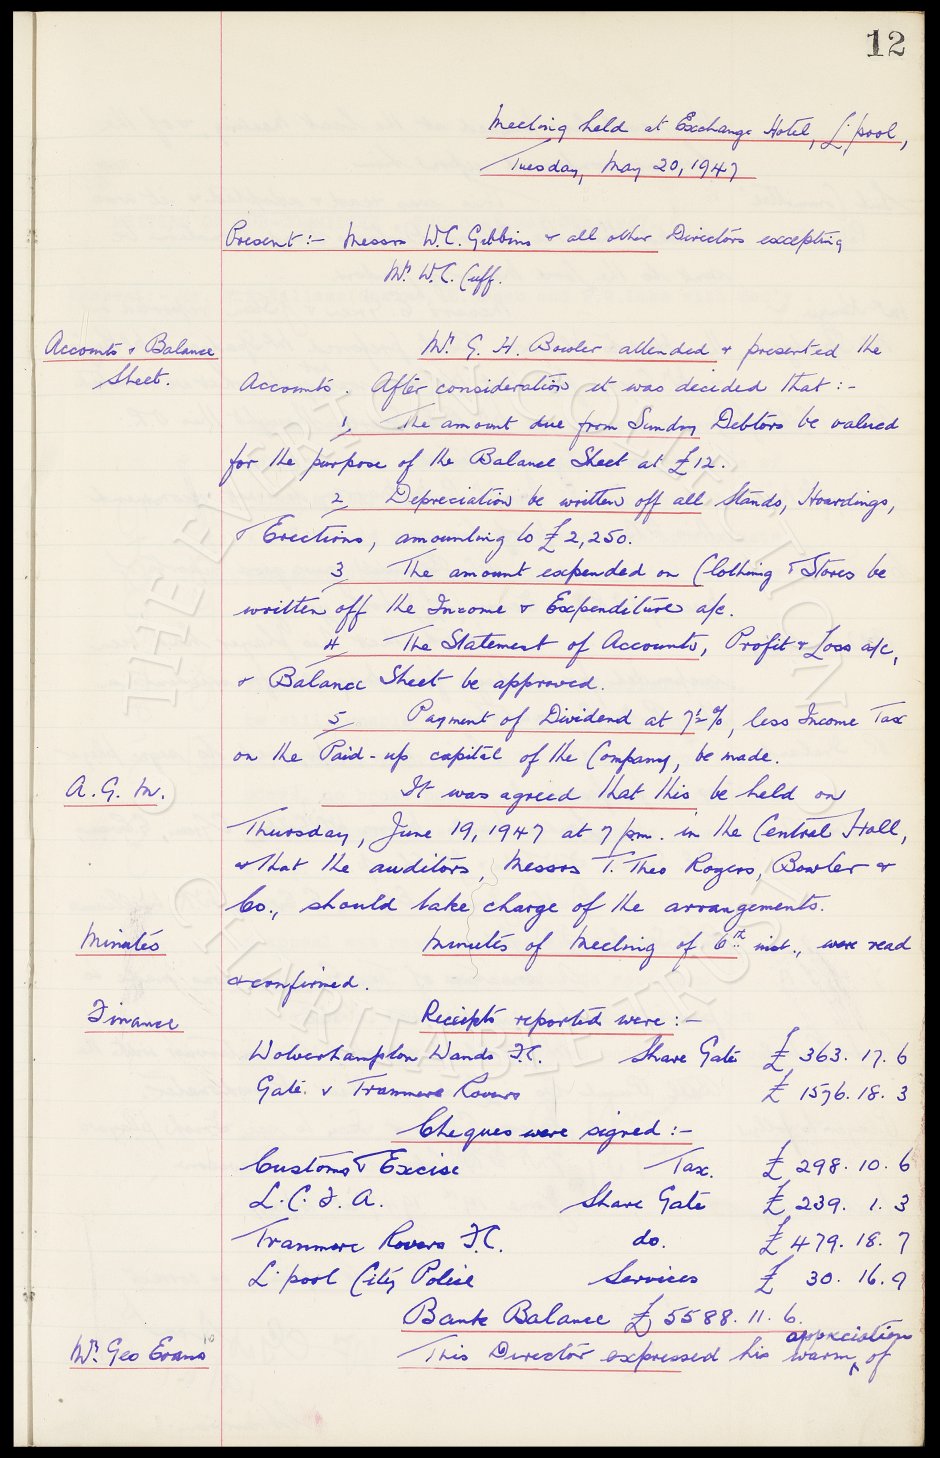 12
Meeting held at Exchange Hotel, L'pool,
Tuesday, May 20, 1947
Present :- Messrs W.C. Gibbins & all other Directors excepting
Mr. W.C. Cuff.
Accounts & Balance
Sheet.
Mr. G. H. Bowler attended & presented the
Accounts. After consideration it was decided that :-
1, The amount due from Sundry Debtors be valued
for the purpose of the Balance Sheet at £12.
2 Depreciation be written off all Stands, Hoardings,
& Erections, amounting to £2,250.
3 The amount expended on Clothing & Stores be
written off the Income & Expenditure a/c.
4 The Statement of Accounts, Profit & Loss a/c,
& Balance Sheet be approved.
5 Payment of Dividend at 7½%, less Income Tax
on the Paid-up capital of the Company, be made.
A.G.M. It was agreed that this be held on
Thursday, June 19, 1947 at 7 pm. in the Central Hall,
& that the auditors, Messrs T. Theo Rogers, Bowler &
Co., should take charge of the arrangements.
Minutes Minutes of Meeting of 6th inst., were read
& confirmed.
Finance Receipts reported were :-
Wolverhampton Wands F.C. Share Gate £ 363. 17. 6
Gate v Tranmere Rovers £ 1576. 18. 3
Cheques were signed :-
Customs & Excise Tax. £ 298. 10. 6
L.C.F.A. Share Gate £ 239. 1. 3
Tranmere Rovers F.C. do. £ 479. 18. 7
L'pool City Police Services £ 30. 16. 9
Bank Balance £ 5588. 11. 6.
Mr. Geo Evans This Director expressed his warm appreciation of
THE EVERTON COLLECTION
CHARITABLE TRUST